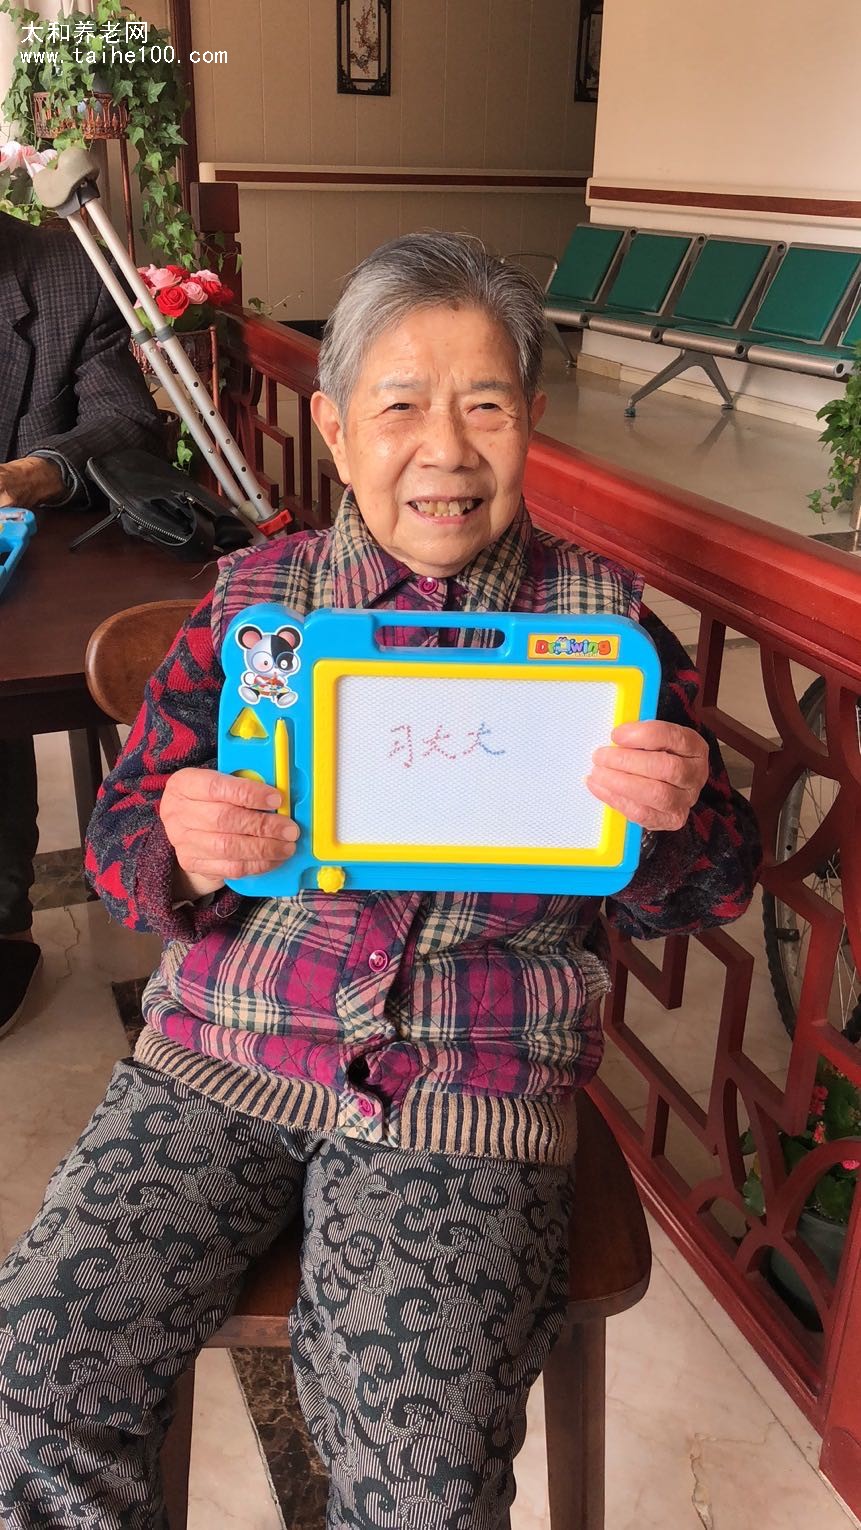 太和养老网
www.taihe100.com
Drawing
习太太